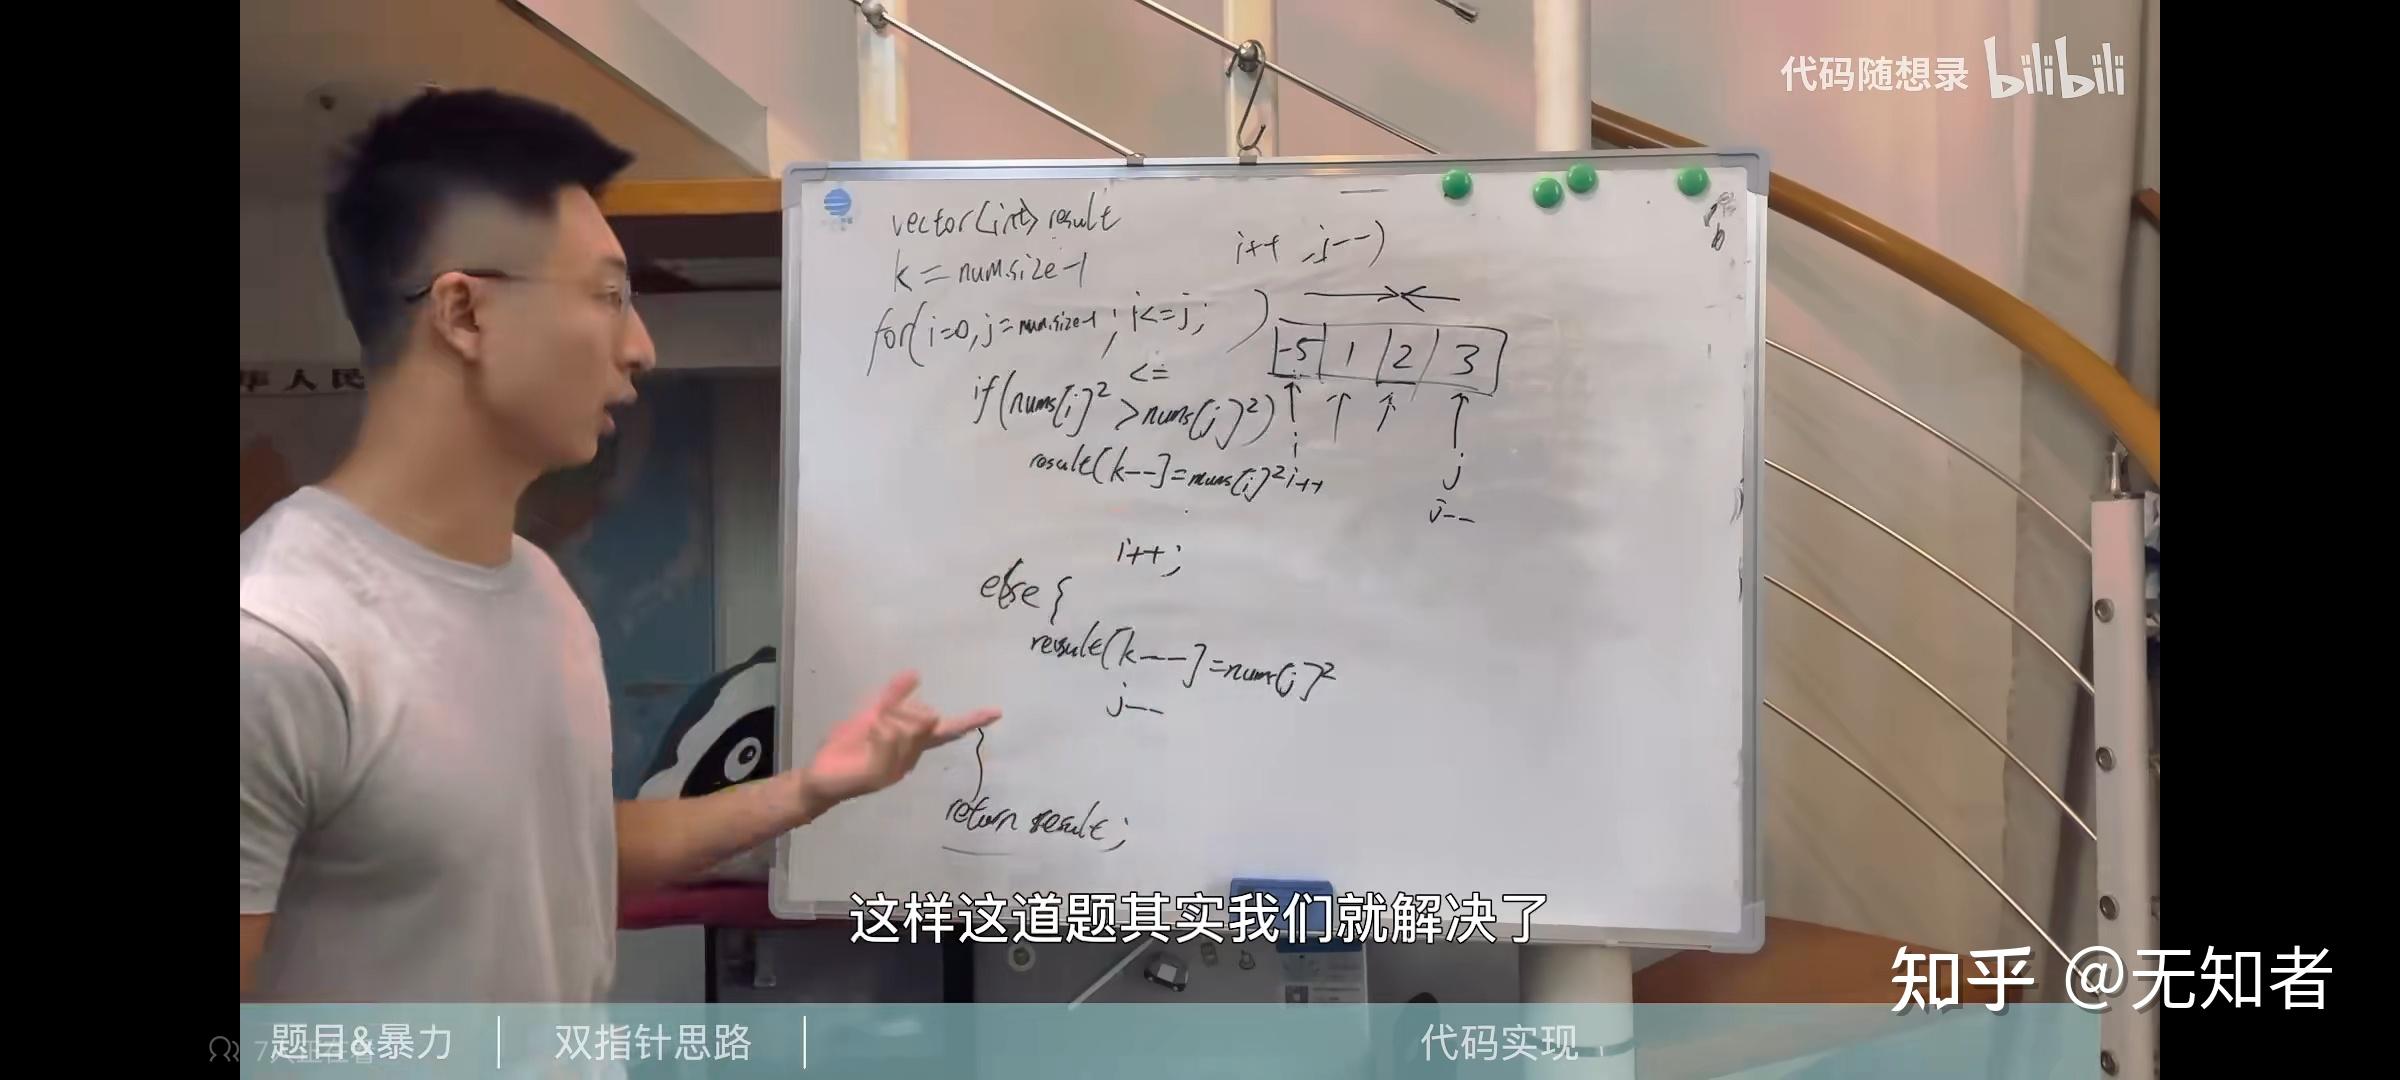 代码随想录 bilibili
vector<int> result
k = nums.size-1
i++ , j--)
for(i=0, j=nums.size-1; i<=j; )
-5 1 2 3
<=
if(nums[i]² > nums[j]²)
i
result[k--]=nums[i]² i++
j
j--
i++;
else {
result[k--]=nums[j]²
j--
}
return result;
华人民
这样这道题其实我们就解决了
知乎 @无知者
题目&暴力 双指针思路 代码实现